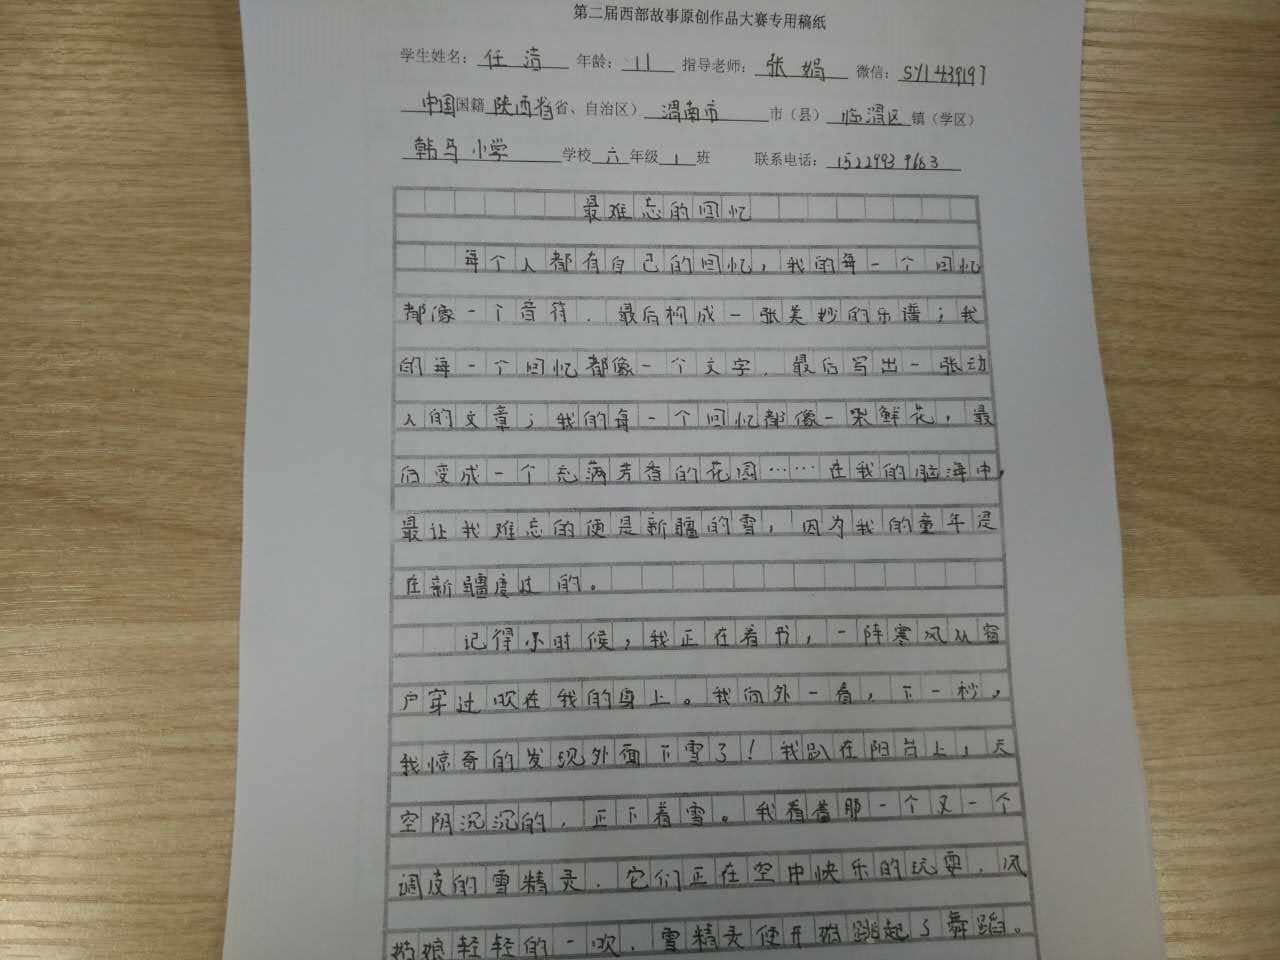 第二届西部故事原创作品大赛专用稿纸
学生姓名：任洁 年龄：11 指导老师：张娟 微信：SY1439197
中国国籍陕西省省、自治区）渭南市市（县）临渭区镇（学区）
韩马小学学校六年级1班 联系电话：15229939663
最难忘的回忆
每个人都有自己的回忆，我的每一个回忆
都像一个音符，最后构成一张美妙的乐谱；我
的每一个回忆都像一个文字，最后写出一张动
人的文章；我的每一个回忆都像一朵鲜花，最
后变成一个充满芳香的花园……在我的脑海中，
最让我难忘的便是新疆的雪，因为我的童年是
在新疆度过的。
记得小时候，我正在看书，一阵寒风从窗
户穿过吹在我的身上。我向外一看，下一秒，
我惊奇的发现外面下雪了！我趴在阳台上，天
空阴沉沉的，正下着雪。我看着那一个又一个
调皮的雪精灵，它们正在空中快乐的玩耍，风
姑娘轻轻的一吹，雪精灵便开始跳起了舞蹈。